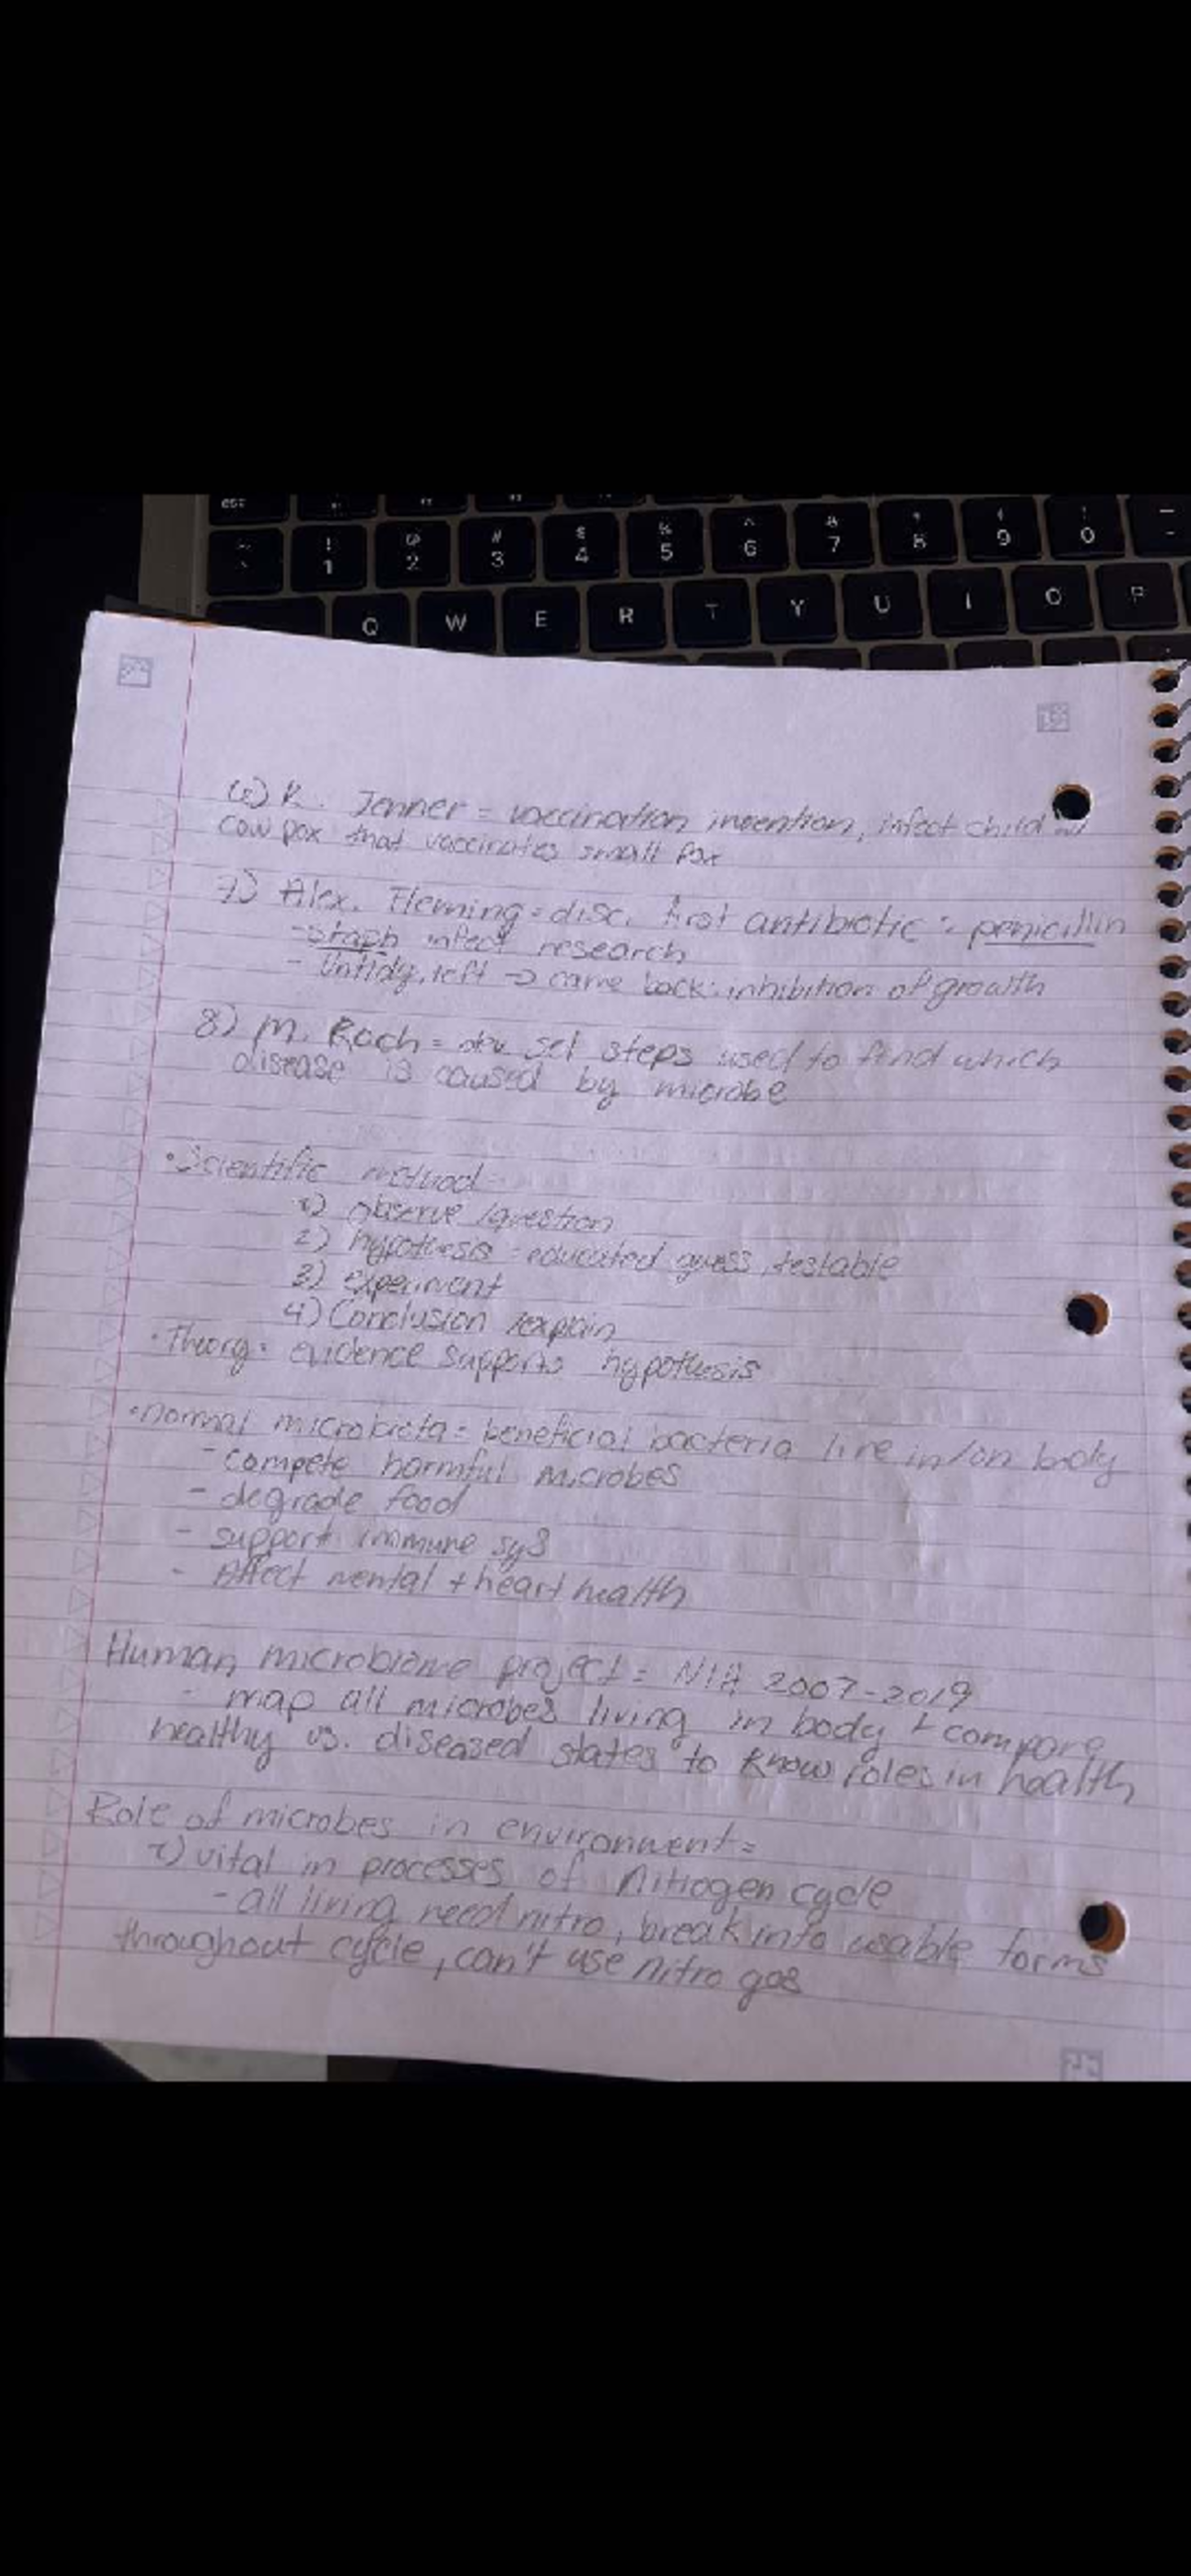 esc
~ ! 1 @ 2 # 3 $ 4 % 5 ^ 6 & 7 * 8 ( 9 ) 0
Q W E R T Y U I O P
6) R. Jenner = vaccination invention, infect child w/
cow pox that vaccinates small pox
7) Alex. Fleming = disc. first antibiotic: penicillin
- Staph infect research
- Untidy, left → came back: inhibition of growth
8) M. Koch = set steps used to find which
disease is caused by microbe
• Scientific method =
1) observe /question
2) hypothesis = educated guess, testable
3) experiment
4) Conclusion /explain
• Theory = evidence supports hypothesis
• normal microbiota = beneficial bacteria live in/on body
- compete harmful microbes
- degrade food
- support immune sys
- Affect mental + heart health
Human microbiome project = NIH 2007-2019
- map all microbes living in body + compare
healthy vs. diseased states to know roles in health
Role of microbes in environment =
1) vital in processes of nitrogen cycle
- all living need nitro, break into usable forms
throughout cycle, can't use nitro gas